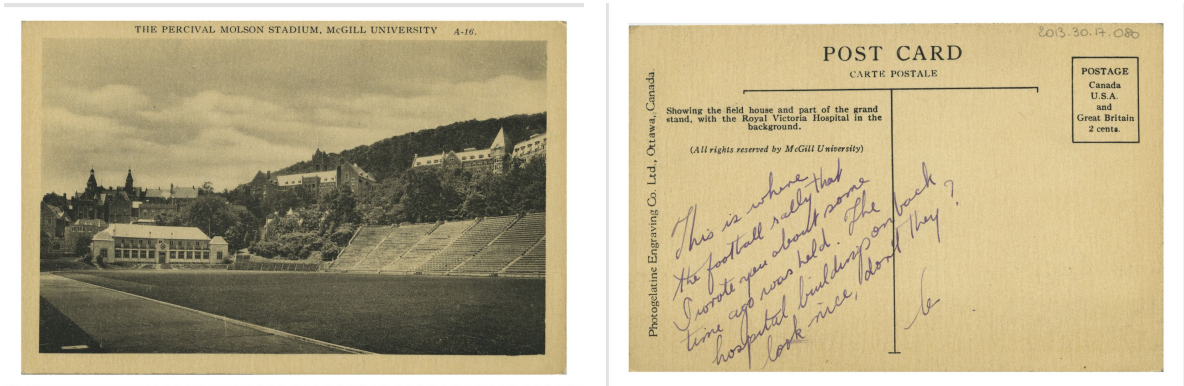 THE PERCIVAL MOLSON STADIUM, McGILL UNIVERSITY A-16.
2013.30.17.080
POST CARD
CARTE POSTALE
POSTAGE
Canada
U.S.A.
and
Great Britain
2 cents.
Photogelatine Engraving Co. Ltd., Ottawa, Canada.
Showing the field house and part of the grand
stand, with the Royal Victoria Hospital in the
background.
(All rights reserved by McGill University)
This is where
the football rally that
I wrote you about some
time ago was held. The
hospital buildings on back
look nice, don't they?